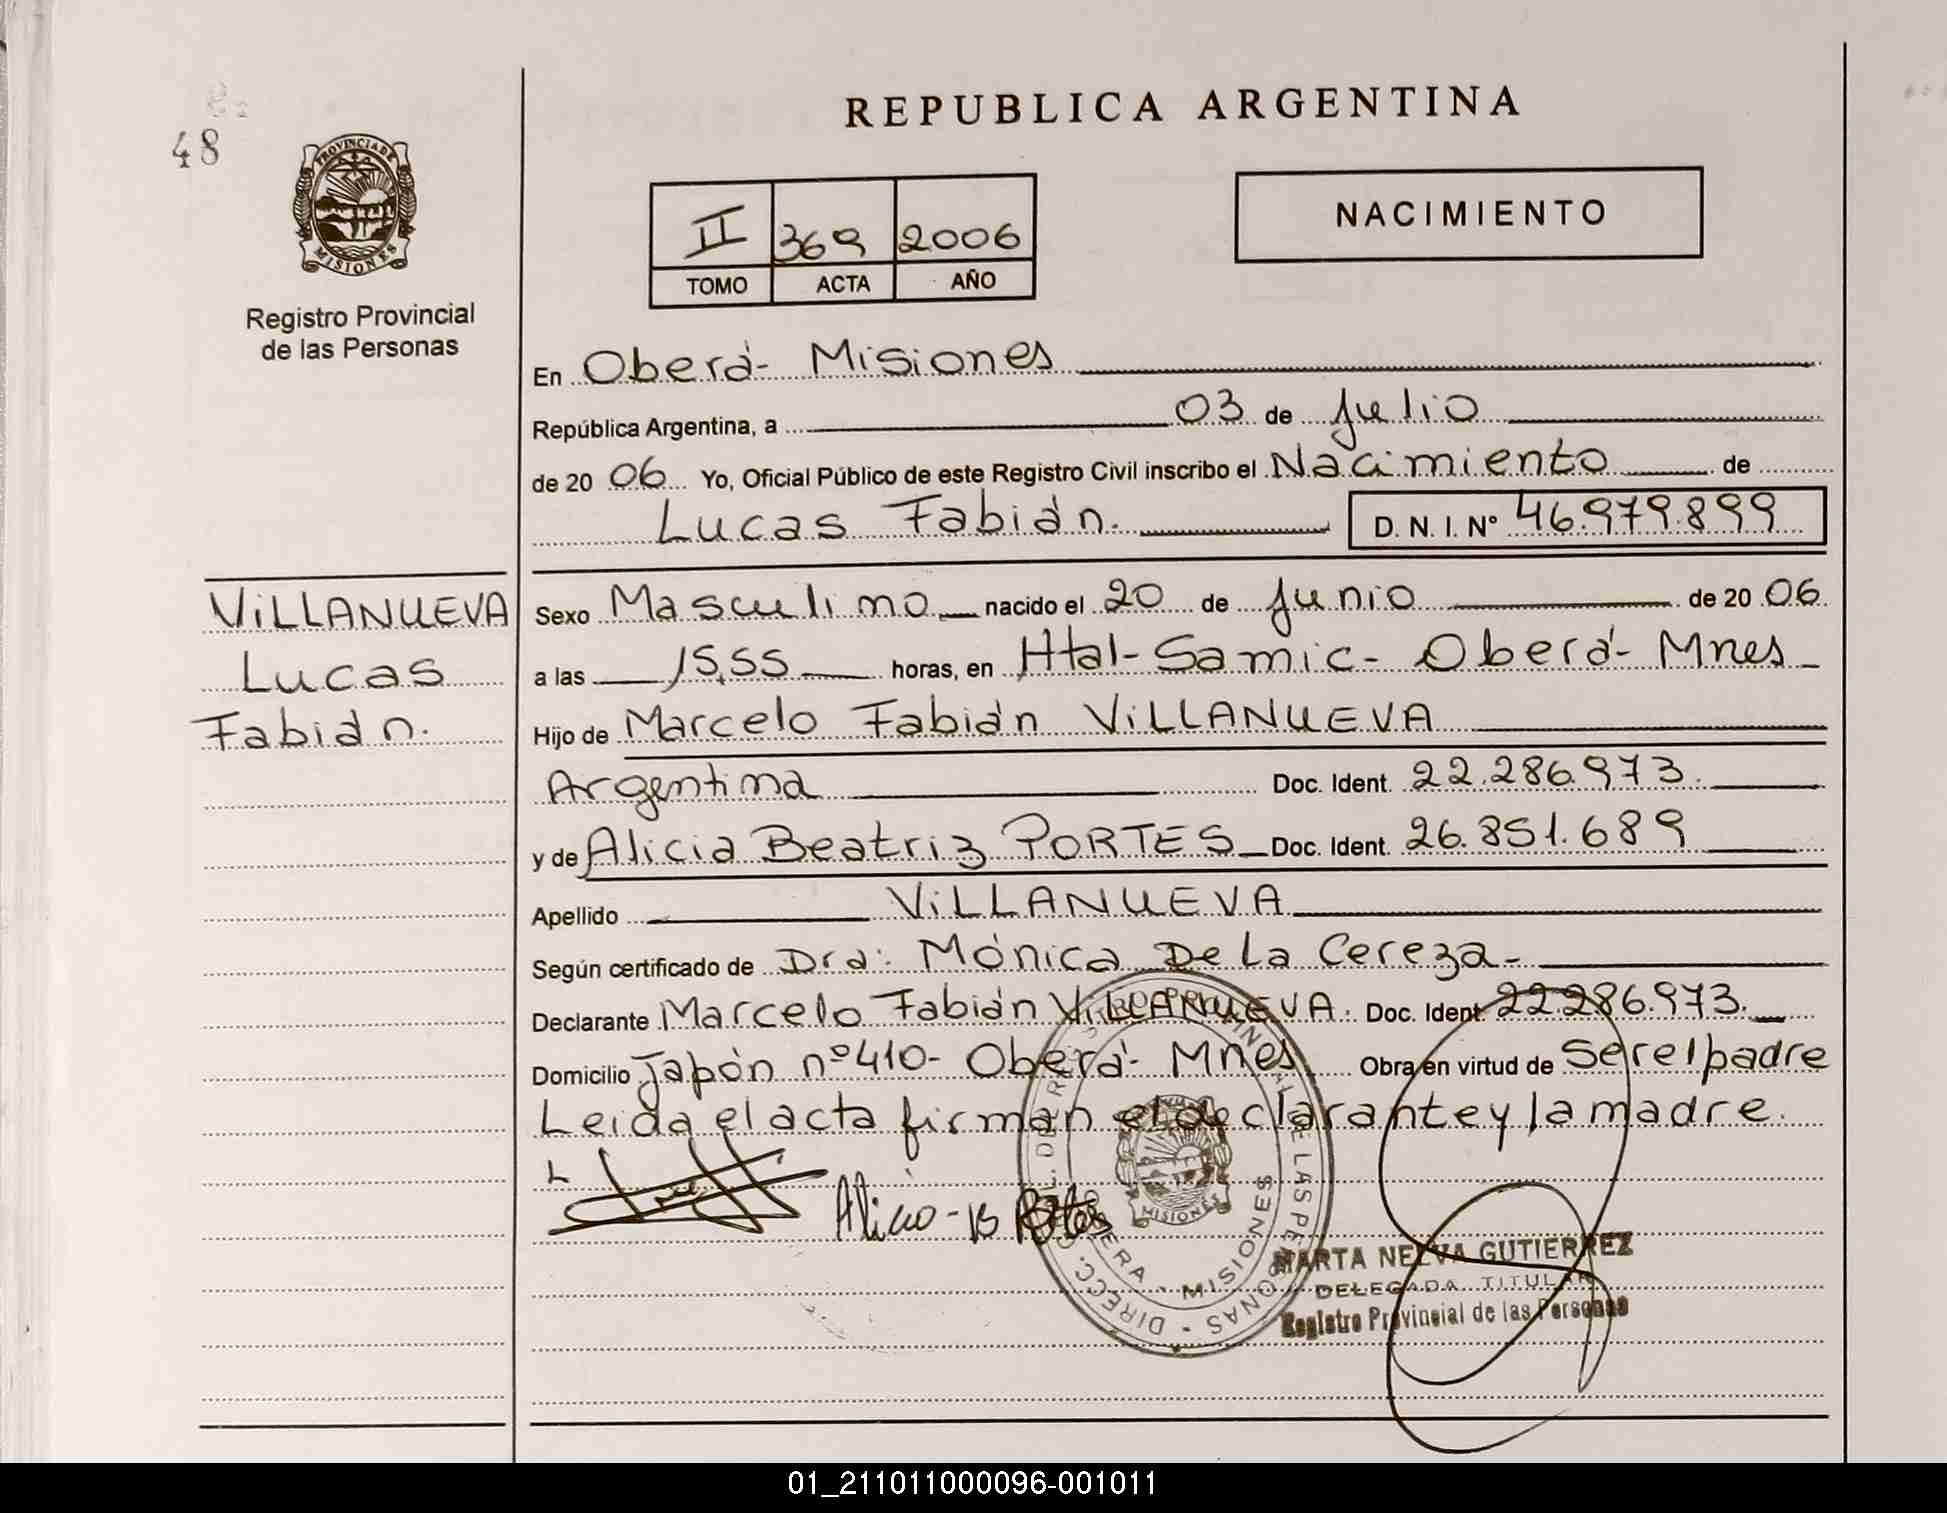 48
REPUBLICA ARGENTINA
PROVINCIA DE
MISIONES
Registro Provincial
de las Personas
II 369 2006
TOMO ACTA AÑO
NACIMIENTO
En Oberá- Misiones
República Argentina, a 03 de Julio
de 20 06 Yo, Oficial Público de este Registro Civil inscribo el Nacimiento de
Lucas Fabián. D. N. I. N° 46.979.899
VILLANUEVA
Lucas
Fabián.
Sexo Masculino nacido el 20 de Junio de 20 06
a las 15,55 horas, en Htal-Samic- Oberá- Mnes
Hijo de Marcelo Fabián VILLANUEVA
Argentina Doc. Ident. 22.286.973.
y de Alicia Beatriz PORTES Doc. Ident. 26.851.689
Apellido VILLANUEVA
Según certificado de Dra: Mónica De La Cereza-
Declarante Marcelo Fabián VILLANUEVA. Doc. Ident. 22.286.973.
Domicilio Japón nº 410- Oberá- Mnes Obra en virtud de Ser el padre
Leida el acta firman el declarante y la madre.
Alicia - B Portes
MISIONES
MARTA NELVA GUTIERREZ
DELEGADA TITULAR
Registro Provincial de las Personas
01_211011000096-001011